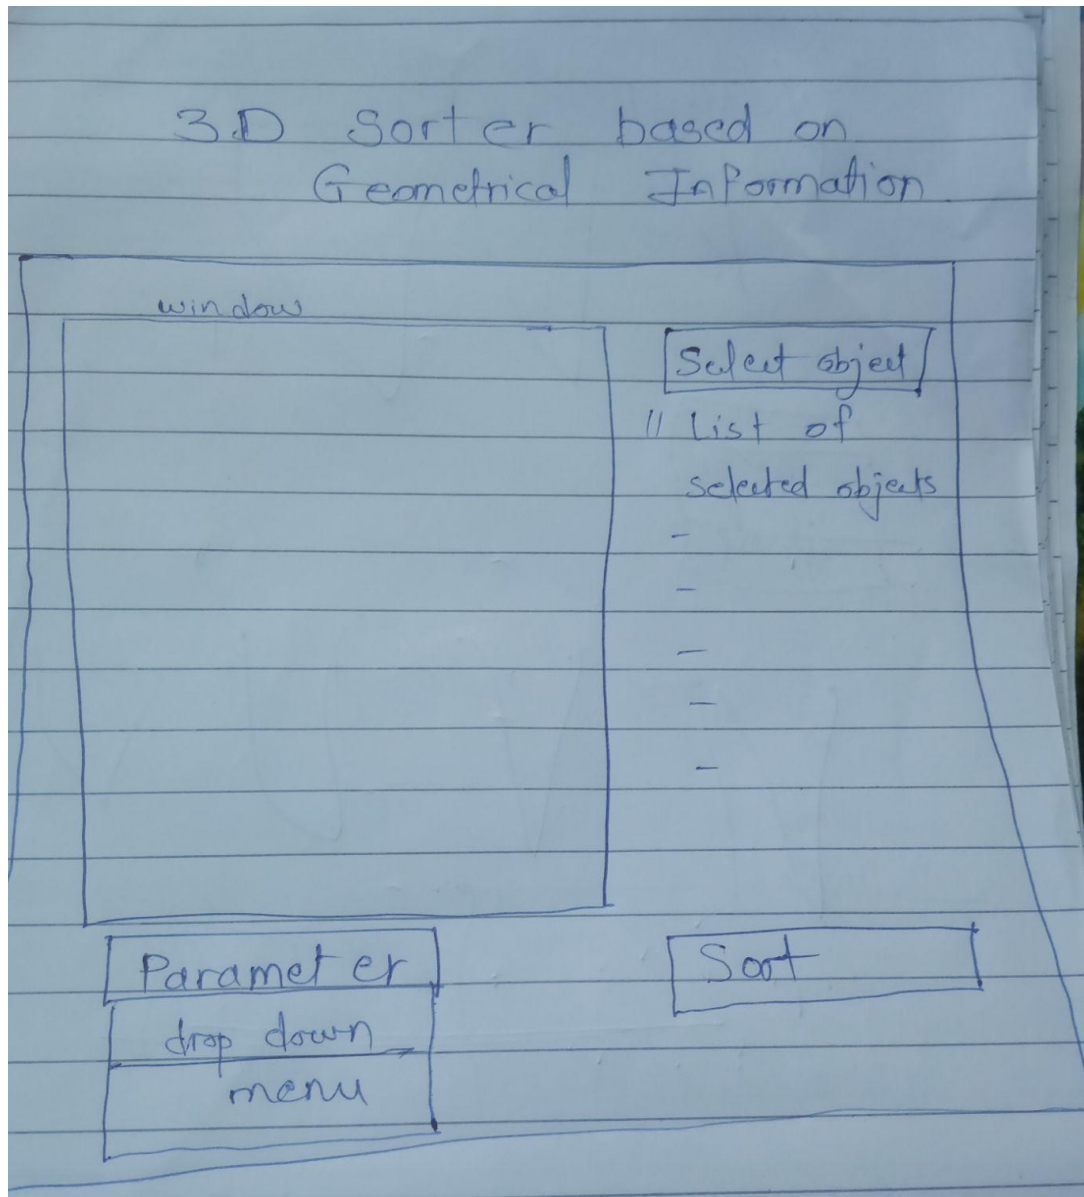 3D Sorter based on
Geometrical Information
window
Select object
// List of
selected objects
-
-
-
-
-
Parameter
drop down
menu
Sort